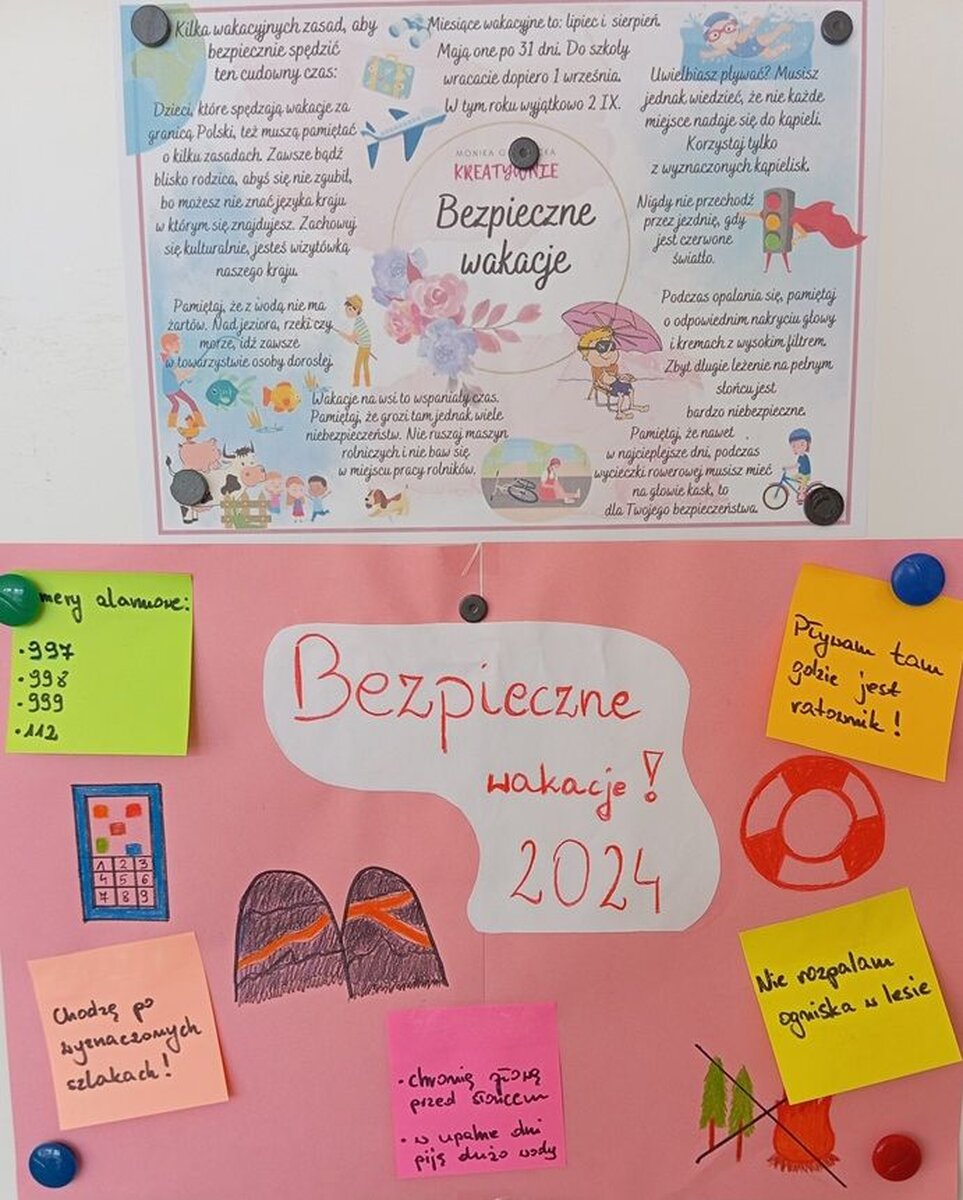 Kilka wakacyjnych zasad, aby
bezpiecznie spędzić
ten cudowny czas:
Dzieci, które spędzają wakacje za
granicą Polski, też muszą pamiętać
o kilku zasadach. Zawsze bądź
blisko rodzica, abyś się nie zgubił,
bo możesz nie znać języka kraju
w którym się znajdujesz. Zachowuj
się kulturalnie, jesteś wizytówką
naszego kraju.
Pamiętaj, że z wodą nie ma
żartów. Nad jeziora, rzeki czy
morze, idź zawsze
w towarzystwie osoby dorosłej.
Miesiące wakacyjne to: lipiec i sierpień.
Mają one po 31 dni. Do szkoły
wracacie dopiero 1 września.
W tym roku wyjątkowo 2 IX.
MONIKA
KREATYWNIE
Bezpieczne
wakacje
Uwielbiasz pływać? Musisz
jednak wiedzieć, że nie każde
miejsce nadaje się do kąpieli.
Korzystaj tylko
z wyznaczonych kąpielisk.
Nigdy nie przechodź
przez jezdnię, gdy
jest czerwone
światło.
Podczas opalania się, pamiętaj
o odpowiednim nakryciu głowy
i kremach z wysokim filtrem.
Zbyt długie leżenie na pełnym
słońcu jest
bardzo niebezpieczne.
Wakacje na wsi to wspaniały czas.
Pamiętaj, że grozi tam jednak wiele
niebezpieczeństw. Nie ruszaj maszyn
rolniczych i nie baw się
w miejscu pracy rolników.
Pamiętaj, że nawet
w najcieplejsze dni, podczas
wycieczki rowerowej musisz mieć
na głowie kask, to
dla Twojego bezpieczeństwa.
mery alarmowe:
• 997
• 998
• 999
• 112
Bezpieczne
wakacje!
2024
Pływam tam
gdzie jest
ratownik!
1 2 3
4 5 6
7 8 9
Chodzę po
wyznaczonych
szlakach!
• chronię głowę
przed słońcem
• w upalne dni
piję dużo wody
Nie rozpalam
ogniska w lesie